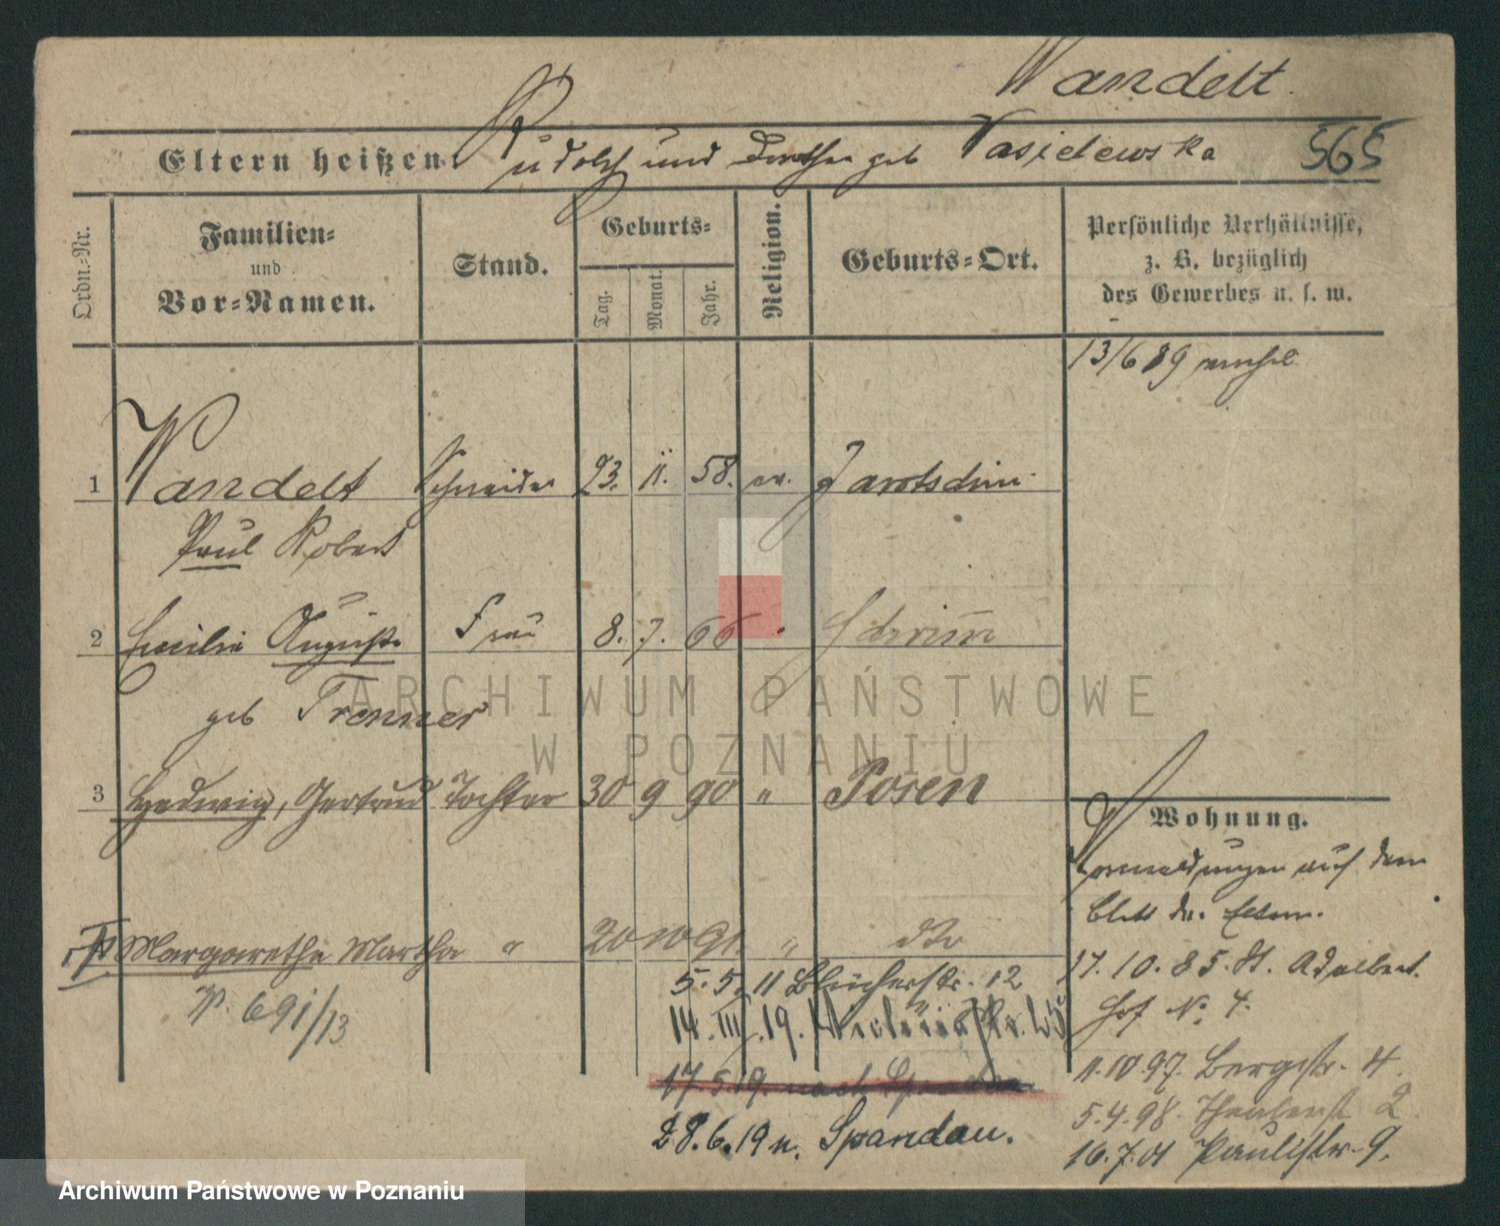 Wandelt.
Eltern heißen Rudolf und Dorothea geb Wasielewska 565
Ordn.-Nr.
Familien-
und
Vor-Namen.
Stand.
Geburts-
Tag.
Monat.
Jahr.
Religion.
Geburts-Ort.
Persönliche Verhältnisse,
z. B. bezüglich
des Gewerbes u. s. w.
13/6 89
1 Wandelt Schneider 23. 11. 58. ev. Jarotschin
Paul Robert
2 Emilie Auguste Frau 8. 7. 66 " Schrimm
geb Trenner
3 Hedwig, Gertrud Tochter 30 9 90 " Posen
Wohnung.
Vormeldungen auf dem
Blatt der Eltern.
Margarethe Martha " 20 10 91. " dto
P. 691/13
17. 10. 85. St. Adalbert
Hof No 4.
11.10.97. Bergstr. 4.
5.4.98. 2
16.7.01 Paulistr. 9.
5. 5. 11 Blücherstr. 12
14. III. 19.
17.5.19. nach Spandau
28.6.19 n. Spandau.
ARCHIWUM PAŃSTWOWE
W POZNANIU
Archiwum Państwowe w Poznaniu